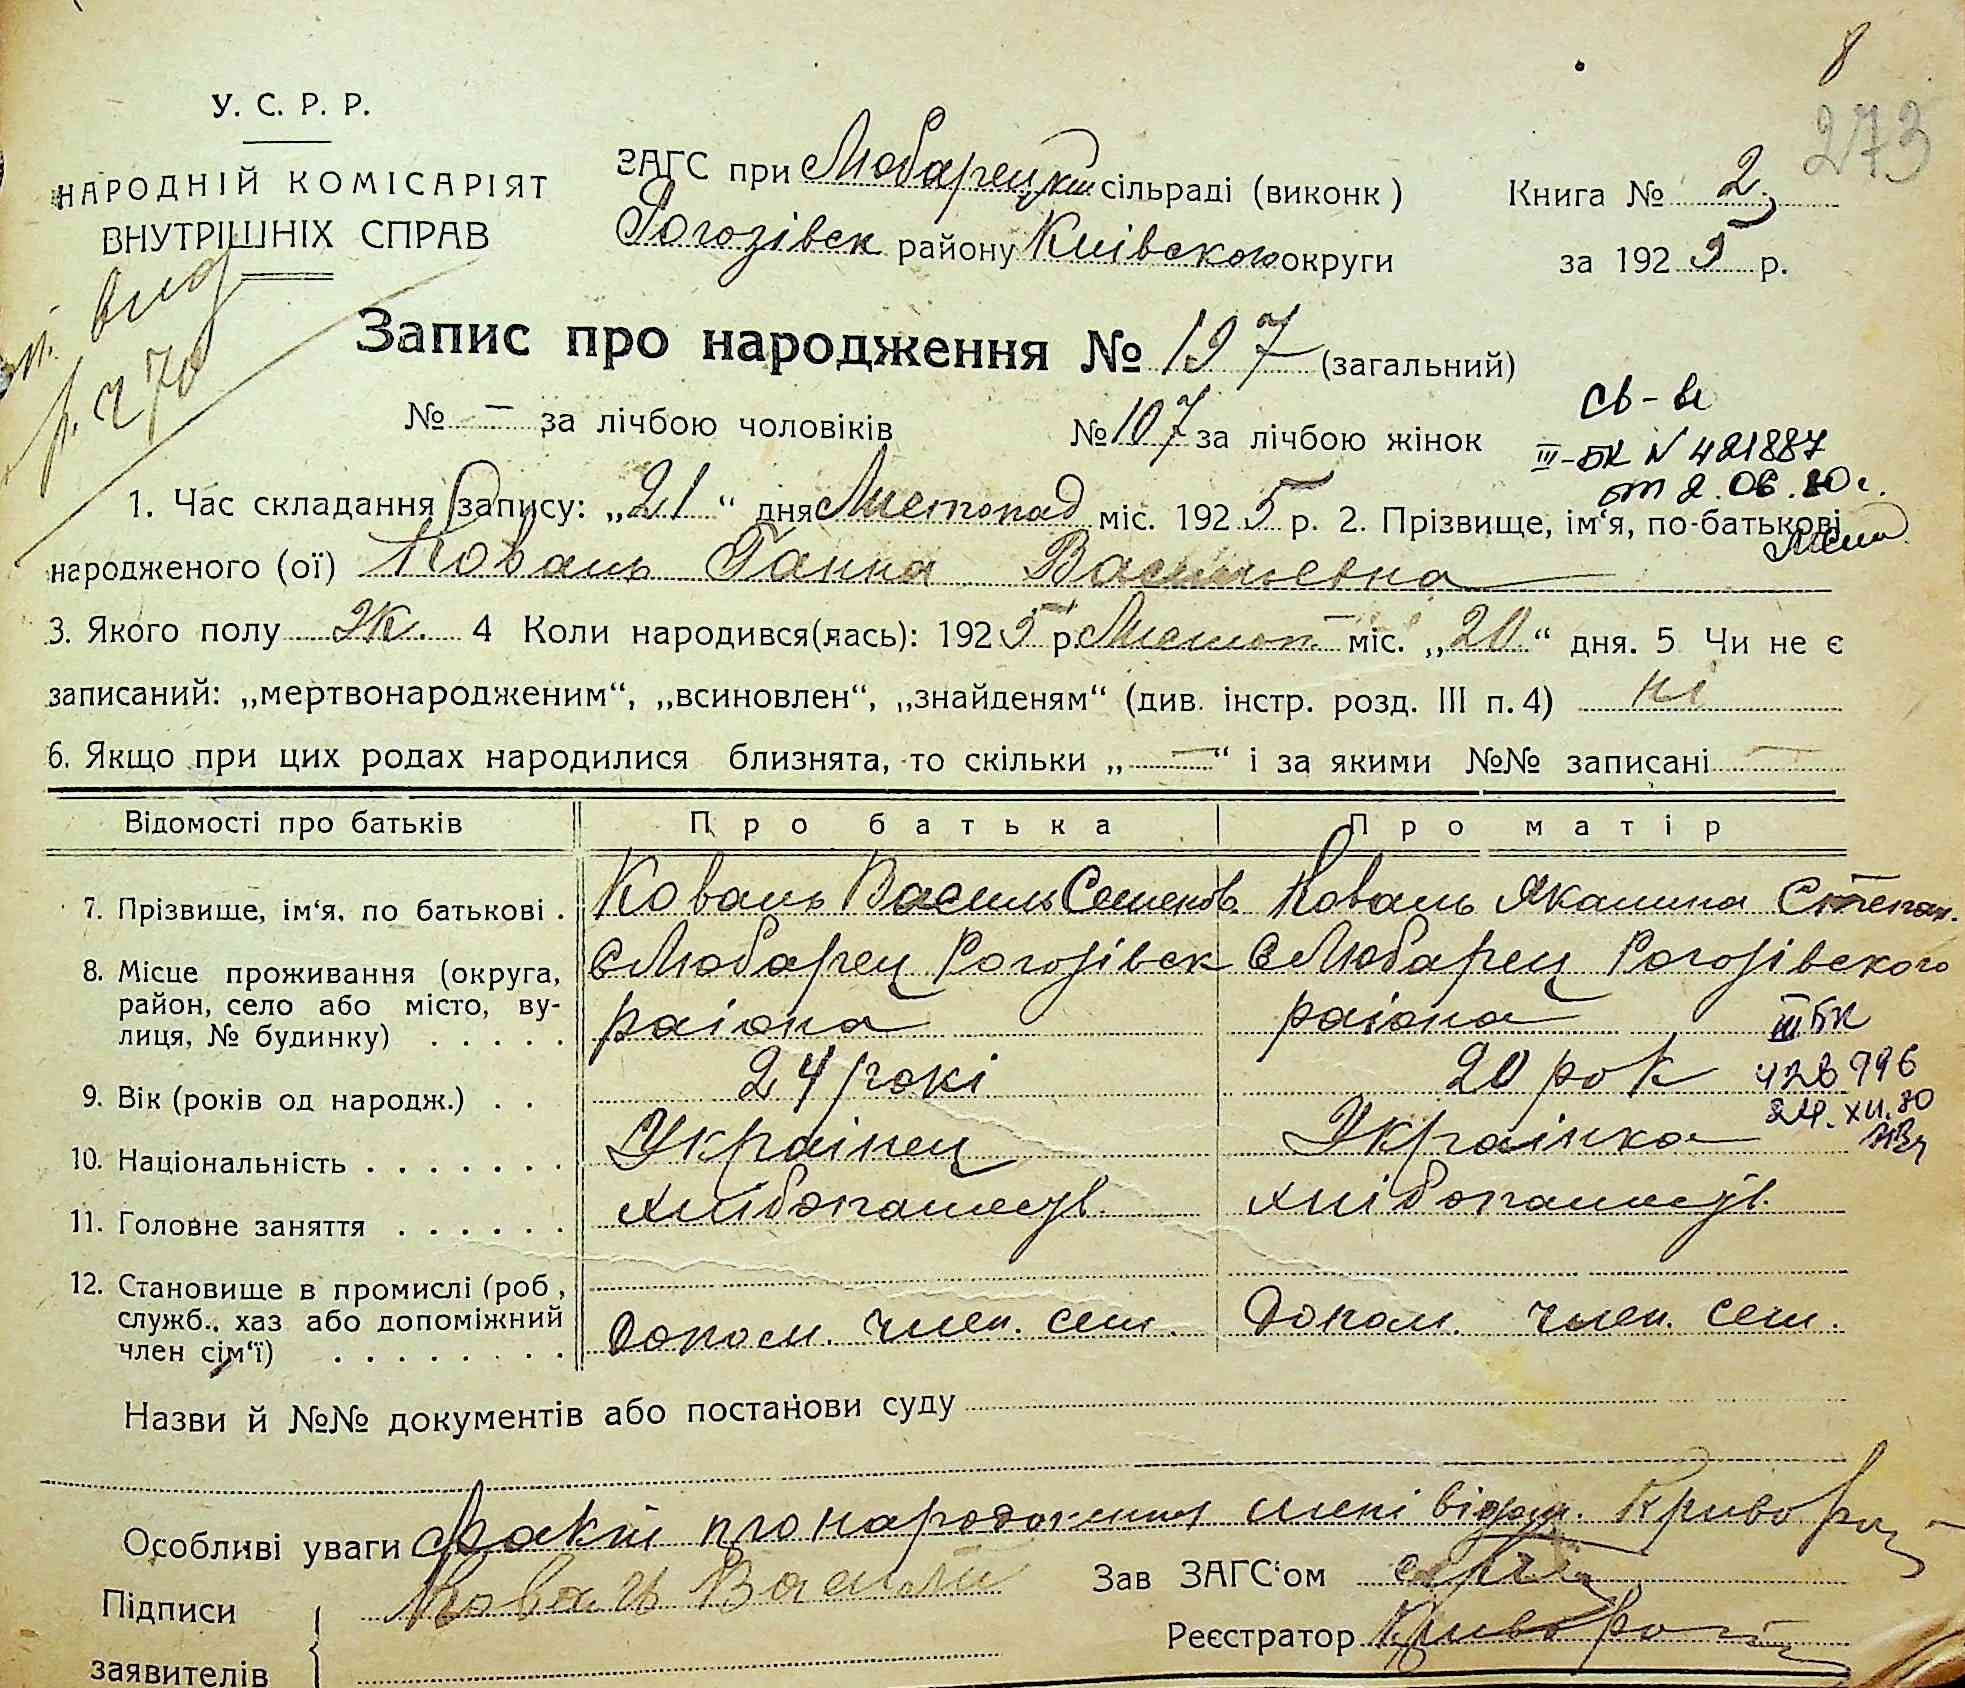 8
273
У. С. Р. Р.
НАРОДНІЙ КОМІСАРІЯТ
ВНУТРІШНІХ СПРАВ
ЗАГС при Любарецкій сільраді (виконк)
Рогозівск району Київського округи
Книга № 2
за 1925 р.
Запис про народження № 197 (загальний)
№ — за лічбою чоловіків
№ 107 за лічбою жінок
св-во
III-БК № 421887
от 2.06.80 г.
1. Час складання запису: „21“ дня Листопад міс. 1925 р. 2. Прізвище, ім‘я, по-батькові
народженого (ої) Коваль Ганна Василевна
3. Якого полу Ж. 4 Коли народився(лась): 1925 р. Листоп. міс. „20“ дня. 5 Чи не є
записаний: „мертвонародженим“, „всиновлен“, „знайденям“ (див. інстр. розд. III п. 4) ні
6. Якщо при цих родах народилися близнята, то скільки „—“ і за якими №№ записані —
Відомості про батьків
Про батька
Про матір
7. Прізвище, ім‘я, по батькові .
Коваль Василь Семенов.
Коваль Якилина Степан.
8. Місце проживання (округа, район, село або місто, вулиця, № будинку) . . . . .
с Любарец Рогозівск
раіона
с Любарец Рогозівского
раіона
III БК
428996
24.XII.80
9. Вік (років од народж.) . .
24 рокі
20 рок
10. Національність . . . . . . .
Украінец
Украінка
11. Головне заняття . . . . . .
хлібопашув.
хлібопашув.
12. Становище в промислі (роб, служб., хаз або допоміжний член сім‘ї) . . . . . . . .
Допом. член. сем.
Допом. член. сем.
Назви й №№ документів або постанови суду
Особливі уваги Факт про народження мені відом. Криворот
Підписи
заявителів
Коваль Василь
Зав ЗАГС‘ом
Реєстратор Криворот